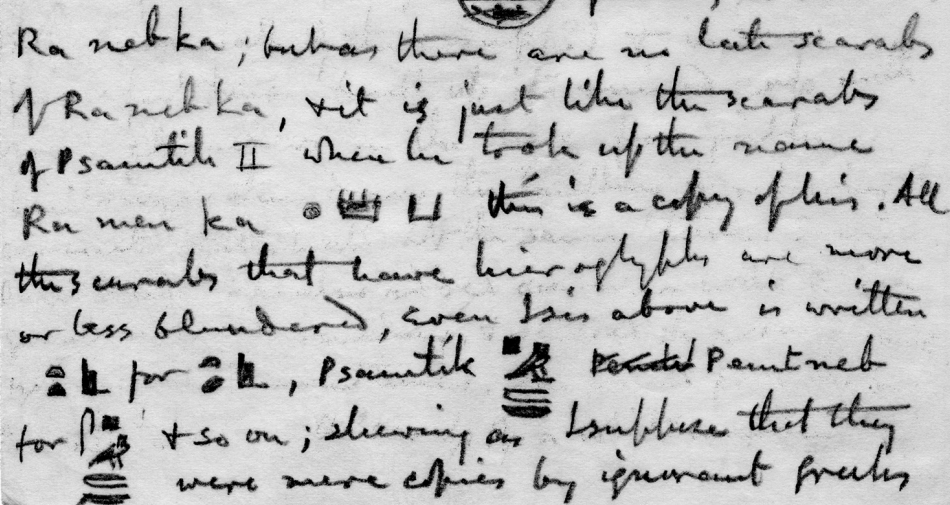 Ra nebka; but as there are no late scarabs
of Ra neb ka, & it is just like the scarabs
of Psamtik II when he took up the name
Ra men ka 𓇳 𓏠 𓂓 this is a copy of his. All
the scarabs that have hieroglyphs are more
or less blundered, even Isis above is written
for , Psamtik Pemtneb
for & so on; shewing as I suppose that they
were mere copies by ignorant Greeks